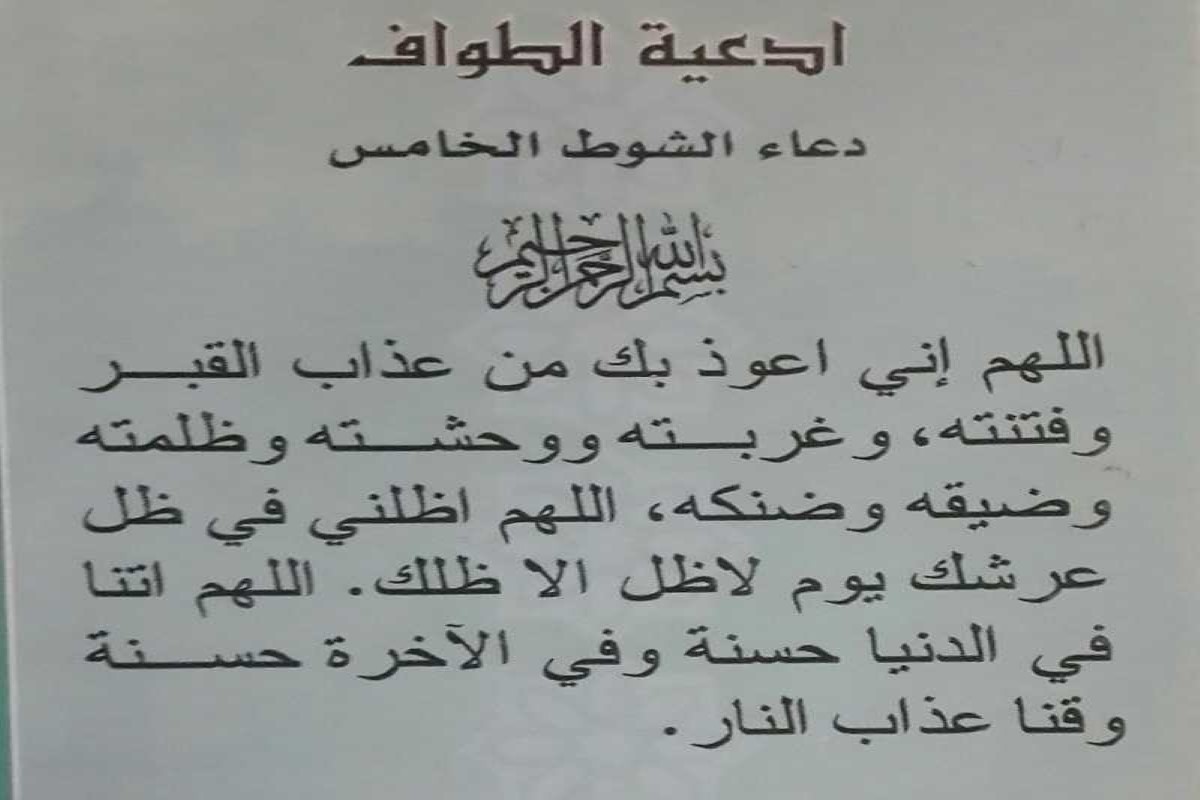 ادعية الطواف
دعاء الشوط الخامس
بسم الله الرحمن الرحيم
اللهم إني اعوذ بك من عذاب القبر
وفتنته، وغربته ووحشته وظلمته
وضيقه وضنكه، اللهم اظلني في ظل
عرشك يوم لاظل الا ظلك. اللهم اتنا
في الدنيا حسنة وفي الآخرة حسنة
وقنا عذاب النار.